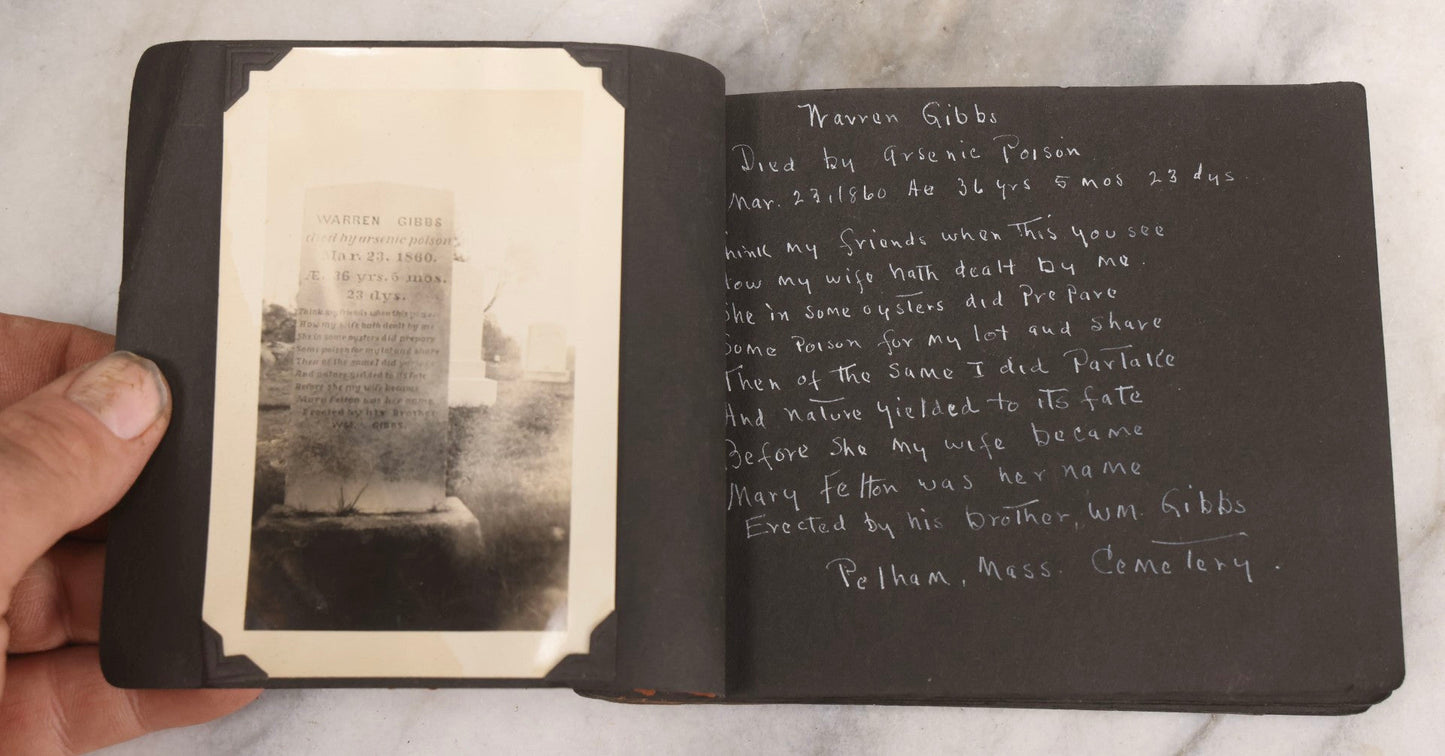 WARREN GIBBS
died by arsenic poison
Mar. 23. 1860.
Æ. 36 yrs. 5 mos.
23 dys.
Think my friends when this you see
How my wife hath dealt by me
She in some oysters did prepare
Some poison for my lot and share
Then of the same I did
And nature yielded to its fate
Before she my wife became
Mary Felton was her name
Erected by his Brother
WM. GIBBS.
Warren Gibbs
Died by Arsenic Poison
Mar. 23, 1860 Ae 36 yrs 5 mos 23 dys
hink my friends when This you see
ow my wife hath dealt by me.
she in some oysters did Prepare
some Poison for my lot and share
Then of the same I did Partake
And nature yielded to its fate
Before she my wife became
Mary Felton was her name
Erected by his brother, WM. Gibbs
Pelham, Mass. Cemetery.